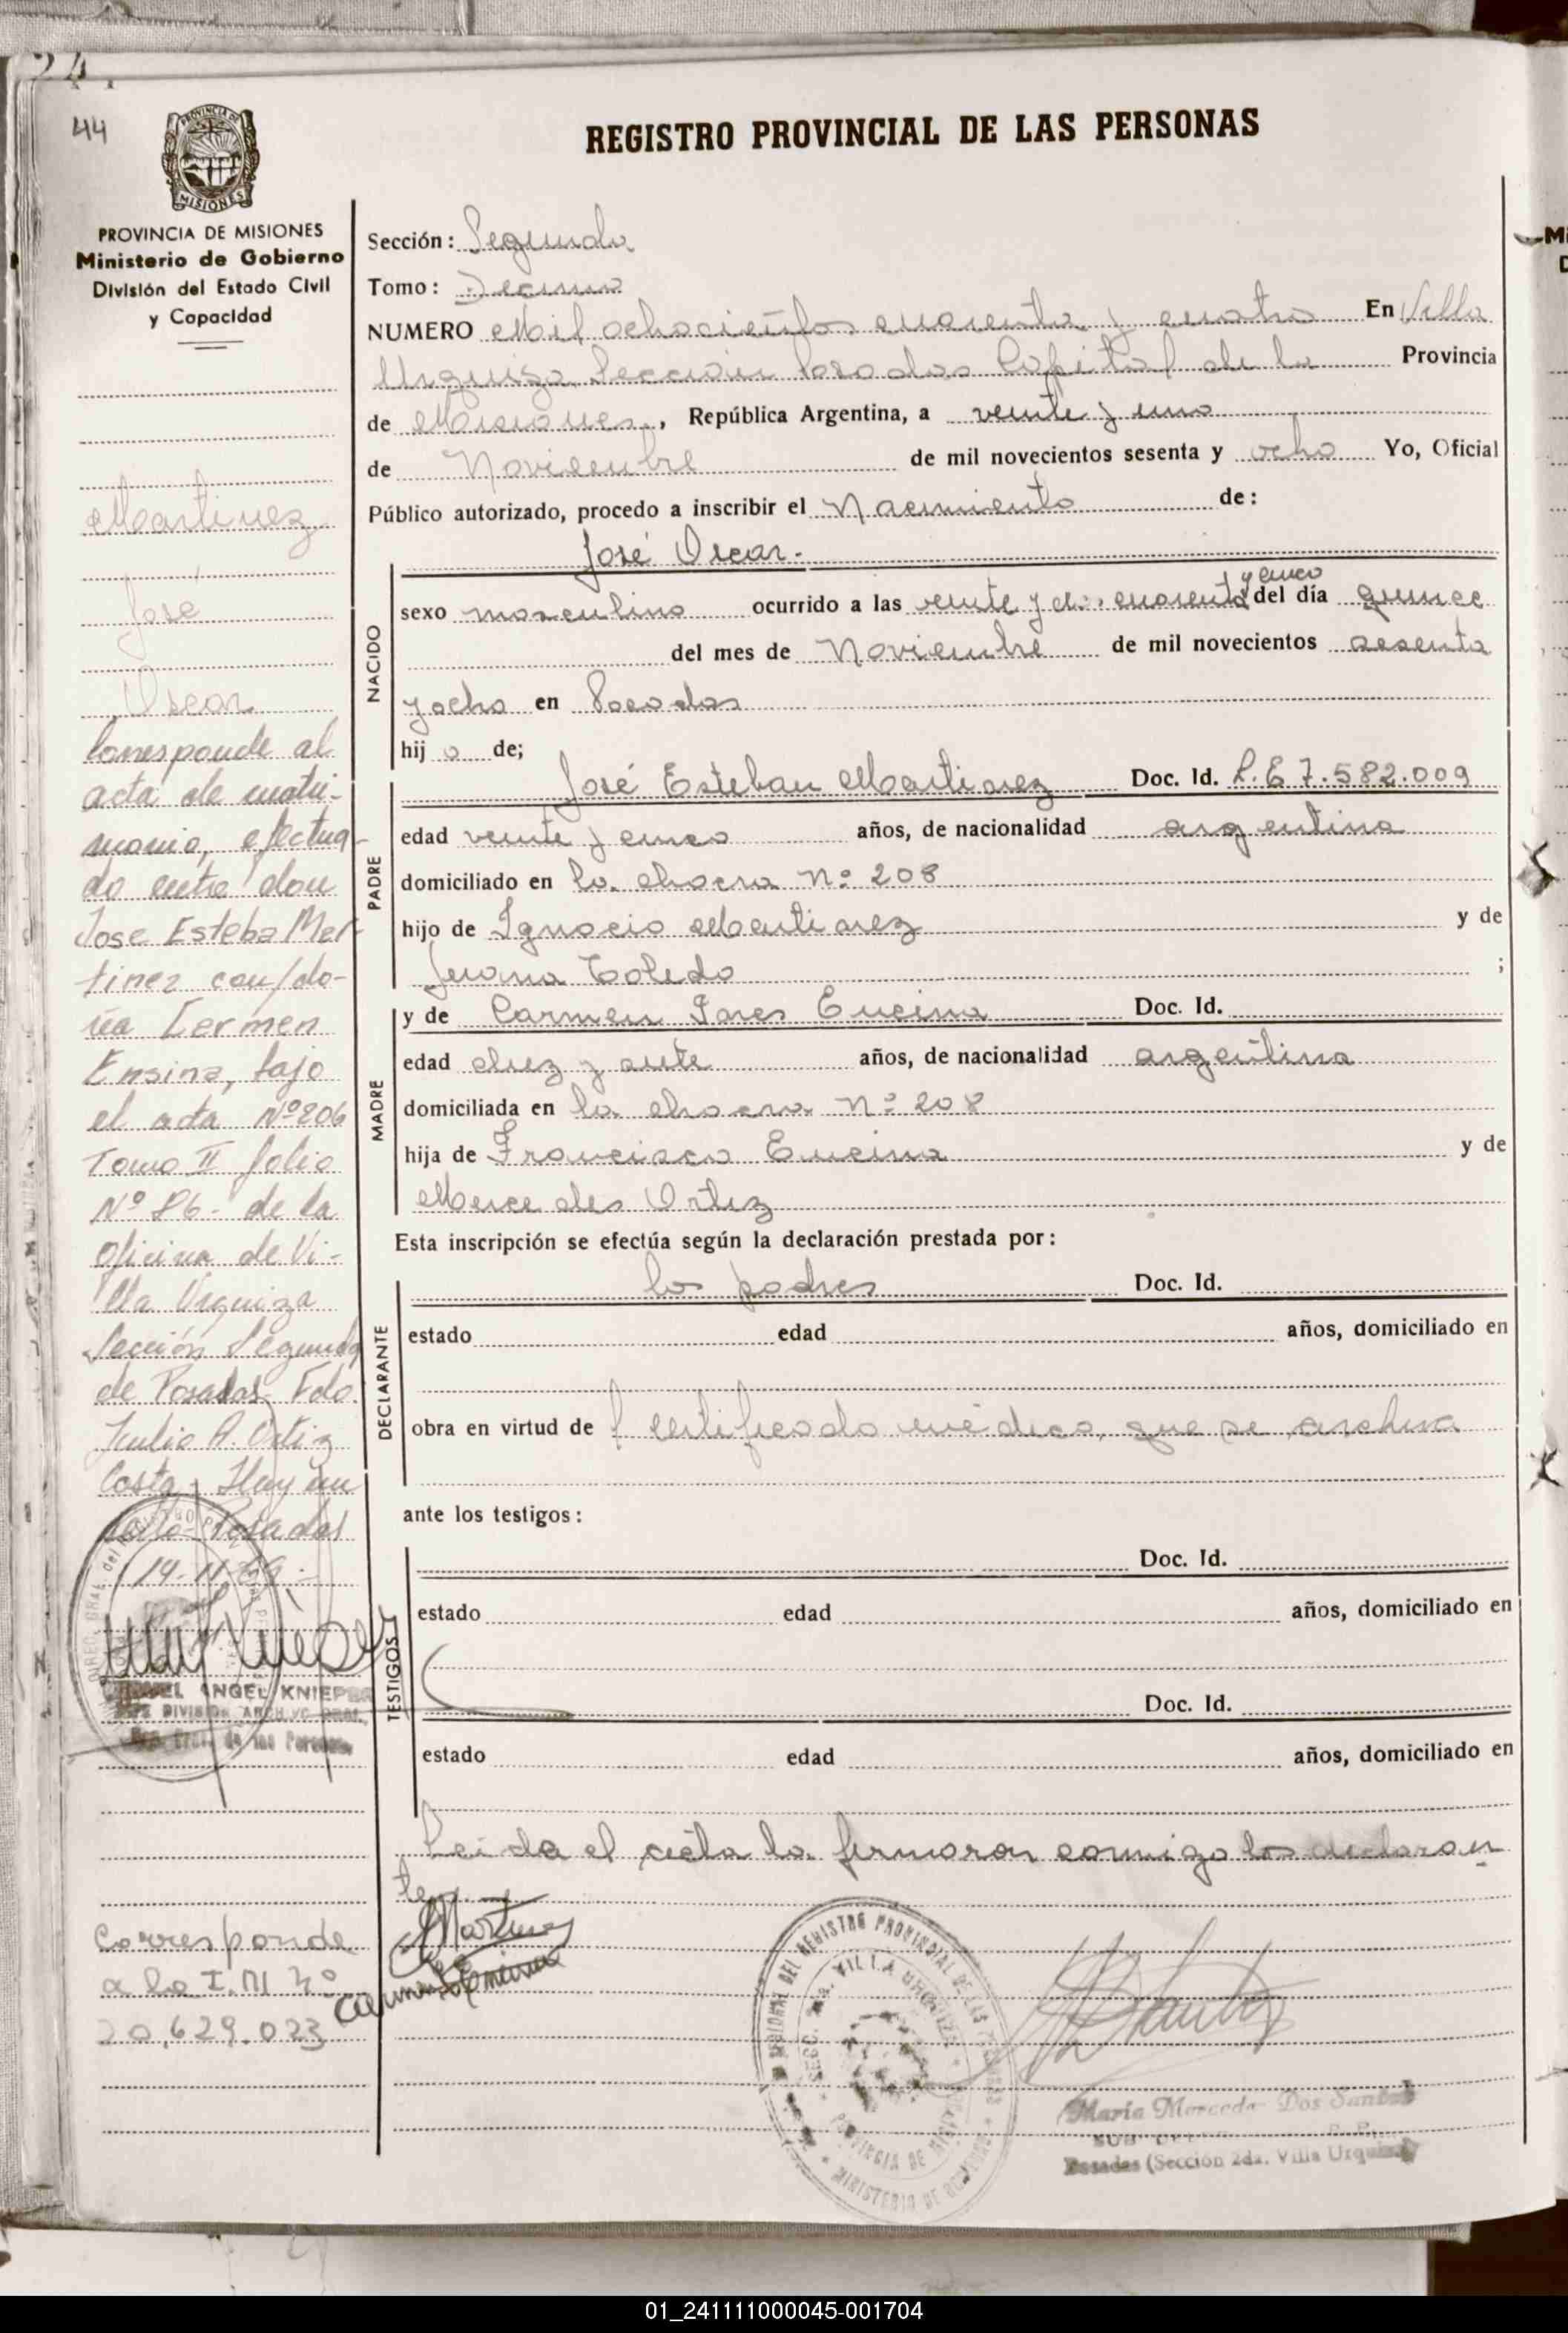 44
REGISTRO PROVINCIAL DE LAS PERSONAS
PROVINCIA DE MISIONES
Ministerio de Gobierno
División del Estado Civil
y Capacidad
Martinez
José
Oscar
Corresponde al
acta de matri-
monio, efectua-
do entre don
Jose Esteba Mar
tinez con/do-
ña Carmen
Ensina, bajo
el acta Nº 206
Tomo II folio
Nº 86- de la
oficina de Vi-
lla Urquiza
Sección Segunda
de Posadas- Fdo.
Julio A. Ortiz
Costa- Hay un
sello- Posadas
14-11-69:-
ANGEL KNIEPER
JEFE DIVISION ARCHIVO GRAL.
Corresponde
a la I. M nº
20.629.023
Sección: Segunda
Tomo: Decimo
NUMERO Mil ochocientos cuarenta y cuatro En Villa
Urquiza Seccion Posadas Capital de la Provincia
de Misiones, República Argentina, a veinte y uno
de Noviembre de mil novecientos sesenta y ocho Yo, Oficial
Público autorizado, procedo a inscribir el Nacimiento de:
José Oscar.
NACIDO
y cinco
sexo masculino ocurrido a las veinte y dos cuarenta del día quince
del mes de Noviembre de mil novecientos sesenta
y ocho en Posadas
hij o de;
PADRE
José Esteban Martinez Doc. Id. L.E 7.582.009
edad veinte y cinco años, de nacionalidad argentina
domiciliado en la chacra Nº 208
hijo de Ignacio Martinez y de
Juana Toledo ;
MADRE
y de Carmen Encina Doc. Id.
edad diez y siete años, de nacionalidad argentina
domiciliada en la chacra Nº 208
hija de Francisco Encina y de
Mercedes Ortiz
Esta inscripción se efectúa según la declaración prestada por:
DECLARANTE
los padres Doc. Id.
estado edad años, domiciliado en
obra en virtud de certificado médico, que se archiva
ante los testigos:
TESTIGOS
Doc. Id.
estado edad años, domiciliado en
Doc. Id.
estado edad años, domiciliado en
Leida el acta la firmaron conmigo los declaran
tes
Martinez
Carmen Encina
REGISTRO PROVINCIAL DE LAS
VILLA URQUIZA
PROVINCIA DE MISIONES
MINISTERIO DE GOBIERNO
Maria Mercedes Dos Santos
Posadas (Sección 2da. Villa Urquiza)
01_241111000045-001704